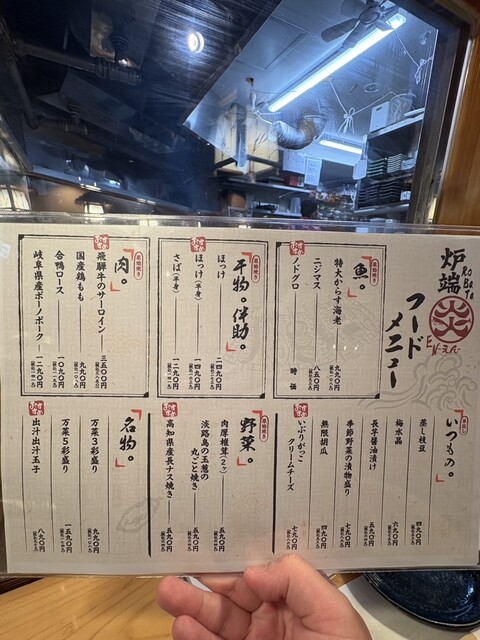 炉端
RoBaTa
EN-えん-
フードメニュー
魚。
特大からす海老
九九〇円
ニジマス
八五〇円
ノドグロ
時価
干物。伴助
ほっけ
二四九〇円
ほっけ(半身)
一四九〇円
さば(半身)
一二九〇円
肉。
飛騨牛のサーロイン
三五〇〇円
国産鶏もも
九九〇円
合鴨ロース
一〇九〇円
岐阜県産ボーノポーク
一二九〇円
いつもの。
蒸し枝豆
四九〇円
梅水晶
六九〇円
長芋醤油漬け
五九〇円
季節野菜の漬物盛り
七九〇円
無限胡瓜
四九〇円
いぶりがっこ
クリームチーズ
七九〇円
野菜。
肉厚椎茸(2ヶ)
五九〇円
淡路島の玉葱の
丸ごと焼き
五九〇円
高知県産長ナス焼き
五九〇円
名物。
万菜3彩盛り
九九〇円
万菜5彩盛り
一五九〇円
出汁出汁玉子
八九〇円